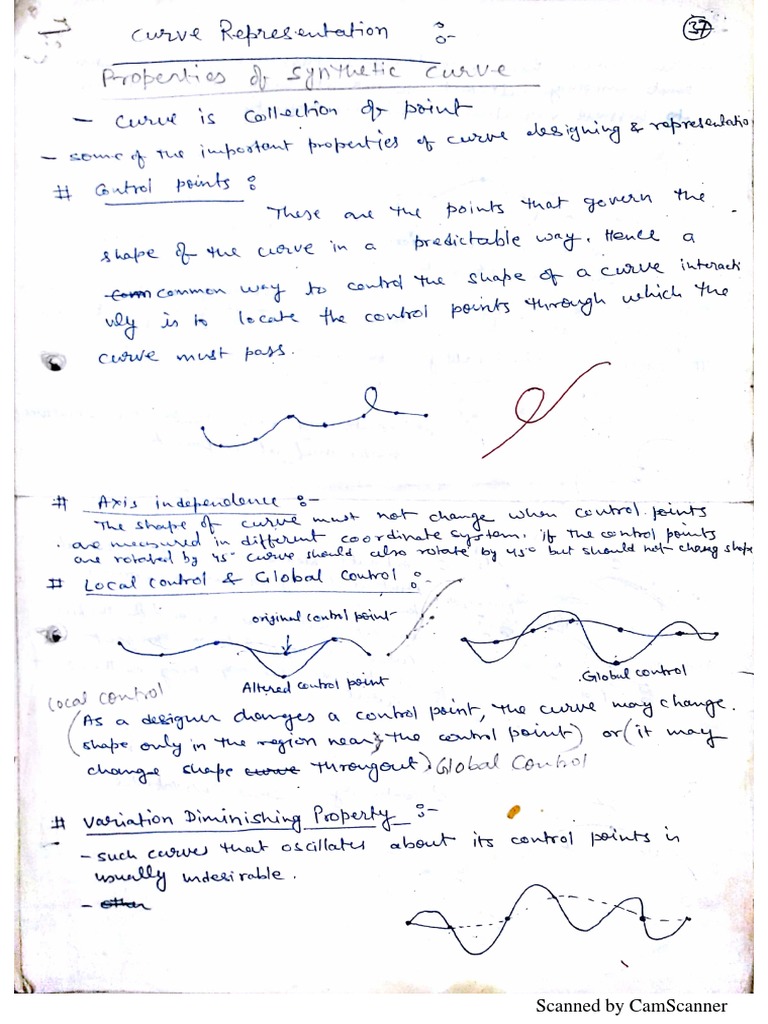 37
Curve Representation :-
Properties of Synthetic Curve
- Curve is collection of point
- some of the important properties of curve designing & representatio
# Control points :
These are the points that govern the
shape of the curve in a predictable way. Hence a
com common way to control the shape of a curve interacti
vely is to locate the control points through which the
curve must pass.
# Axis independence :-
The shape of curve must not change when control points
are measured in different coordinate system. if the control points
are rotated by 45° curve should also rotate by 45° but should not chang shape
# Local control & Global control :-
original control point
Altered control point
Global control
Local control
(As a designer changes a control point, the curve may change.
shape only in the region near the control point) or (it may
change shape curve througout). Global Control
# Variation Diminishing Property :-
- such curves that oscillates about its control points is
usually undesirable.
- other
Scanned by CamScanner